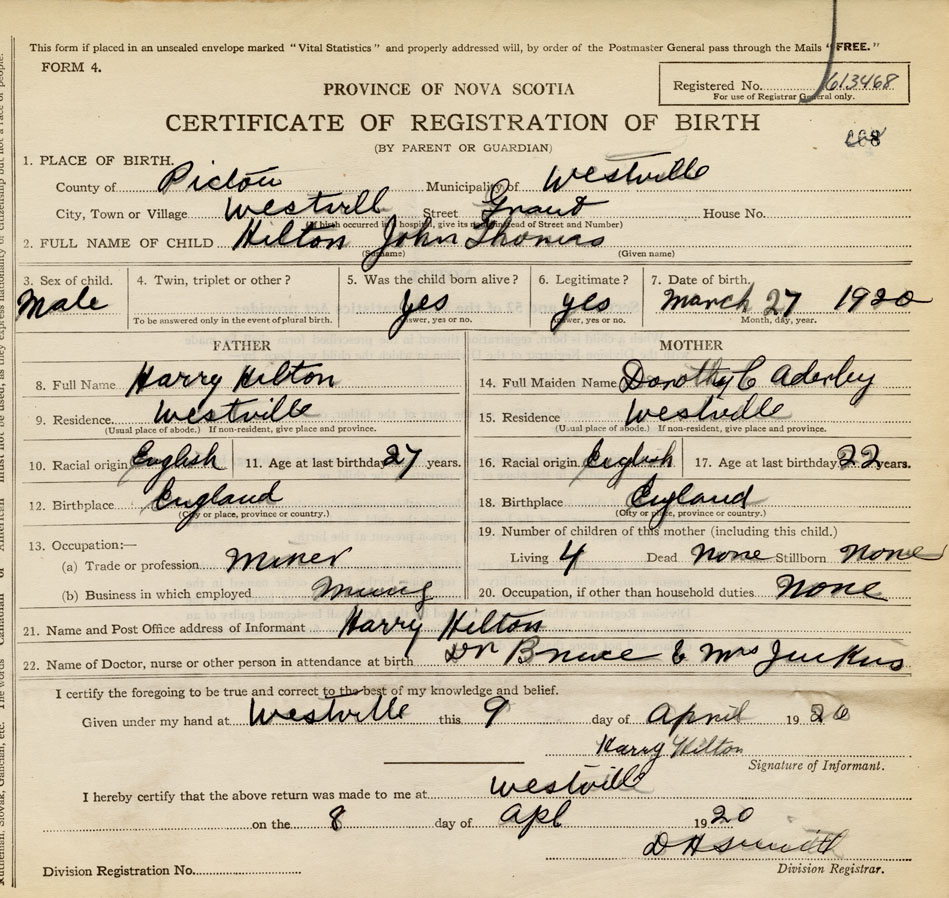 This form if placed in an unsealed envelope marked "Vital Statistics" and properly addressed will, by order of the Postmaster General pass through the Mails "FREE."
FORM 4.
Registered No. 613468
For use of Registrar General only.
PROVINCE OF NOVA SCOTIA
CERTIFICATE OF REGISTRATION OF BIRTH
(BY PARENT OR GUARDIAN)
1. PLACE OF BIRTH.
County of Pictou Municipality of Westville
City, Town or Village Westvill Street Grant House No.
(If birth occurred in hospital, give its name instead of Street and Number)
2. FULL NAME OF CHILD Hilton John Thomas
(Surname) (Given name)
3. Sex of child. 4. Twin, triplet or other? 5. Was the child born alive? 6. Legitimate? 7. Date of birth,
Male yes yes March 27 1920
To be answered only in the event of plural birth. Answer, yes or no. Answer, yes or no. Month, day, year.
FATHER MOTHER
8. Full Name Harry Hilton 14. Full Maiden Name Dorothy C Aderley
9. Residence Westville 15. Residence Westville
(Usual place of abode.) If non-resident, give place and province. (Usual place of abode.) If non-resident, give place and province.
10. Racial origin English 11. Age at last birthday 27 years. 16. Racial origin English 17. Age at last birthday 22 years.
12. Birthplace England 18. Birthplace England
(City or place, province or country.) (City or place, province or country.)
13. Occupation:— 19. Number of children of this mother (including this child.)
(a) Trade or profession Miner Living 4 Dead None Stillborn None
(b) Business in which employed Mining 20. Occupation, if other than household duties None
21. Name and Post Office address of Informant Harry Hilton
22. Name of Doctor, nurse or other person in attendance at birth Dr & Mrs
I certify the foregoing to be true and correct to the best of my knowledge and belief.
Given under my hand at Westville this 9 day of April 1920
Harry Hilton
Signature of Informant.
I hereby certify that the above return was made to me at Westville
on the 8 day of Apl 1920
D H Smith
Division Registration No. Division Registrar.